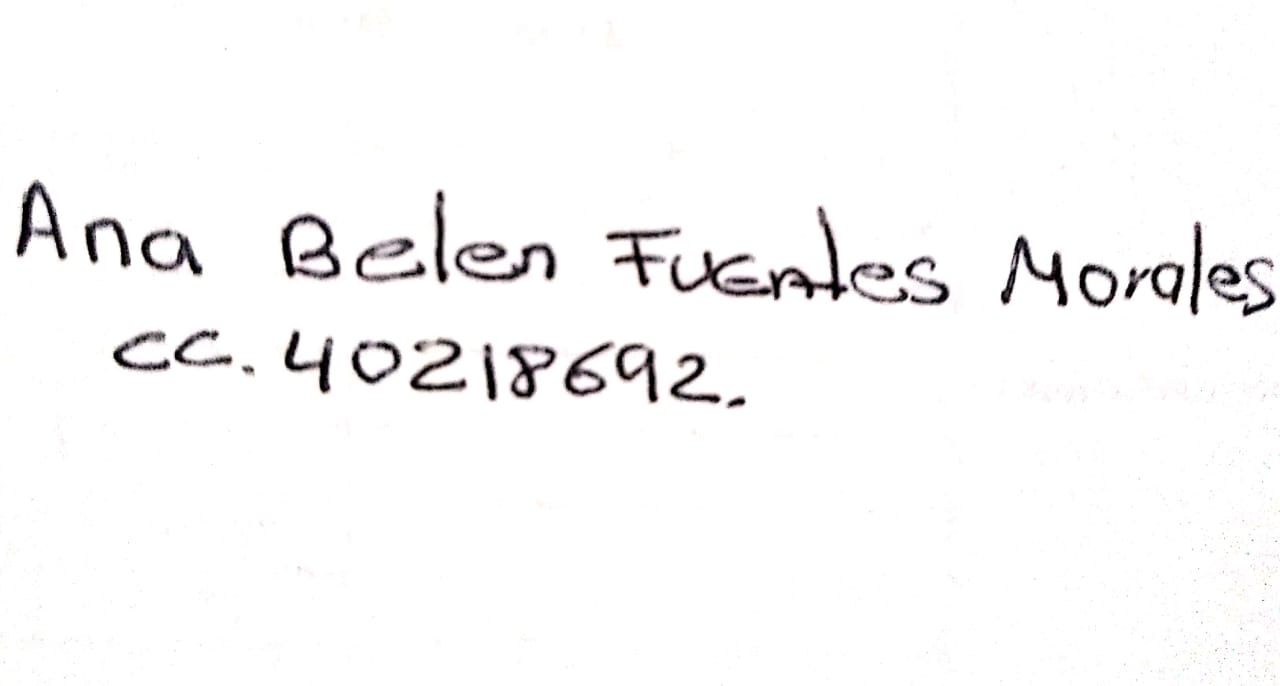 Ana Belen Fuentes Morales
CC. 40218692.